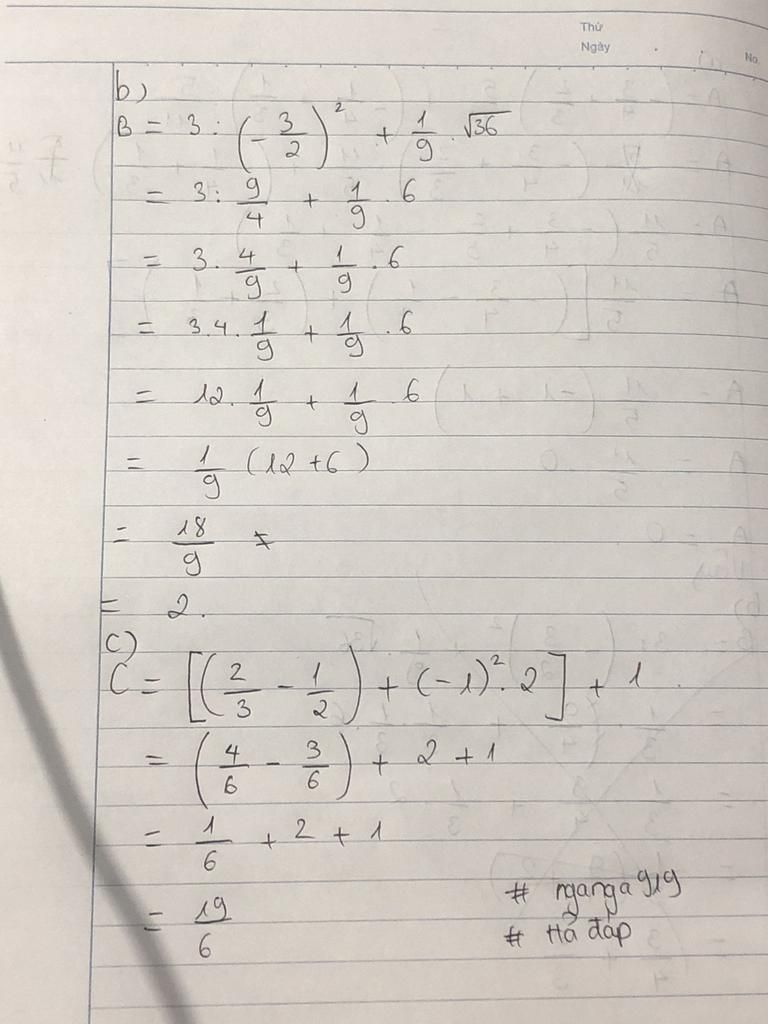 Thứ
Ngày
No.
b)
B = 3 : (-3/2)² + 1/9 . √36
= 3 : 9/4 + 1/9 . 6
= 3 . 4/9 + 1/9 . 6
= 3.4. 1/9 + 1/9 . 6
= 12. 1/9 + 1/9 . 6
= 1/9 (12 + 6)
= 18/9
= 2.
c)
C = [(2/3 - 1/2) + (-1)² . 2] + 1
= (4/6 - 3/6) + 2 + 1
= 1/6 + 2 + 1
= 19/6
# nganga919
# Hả đáp